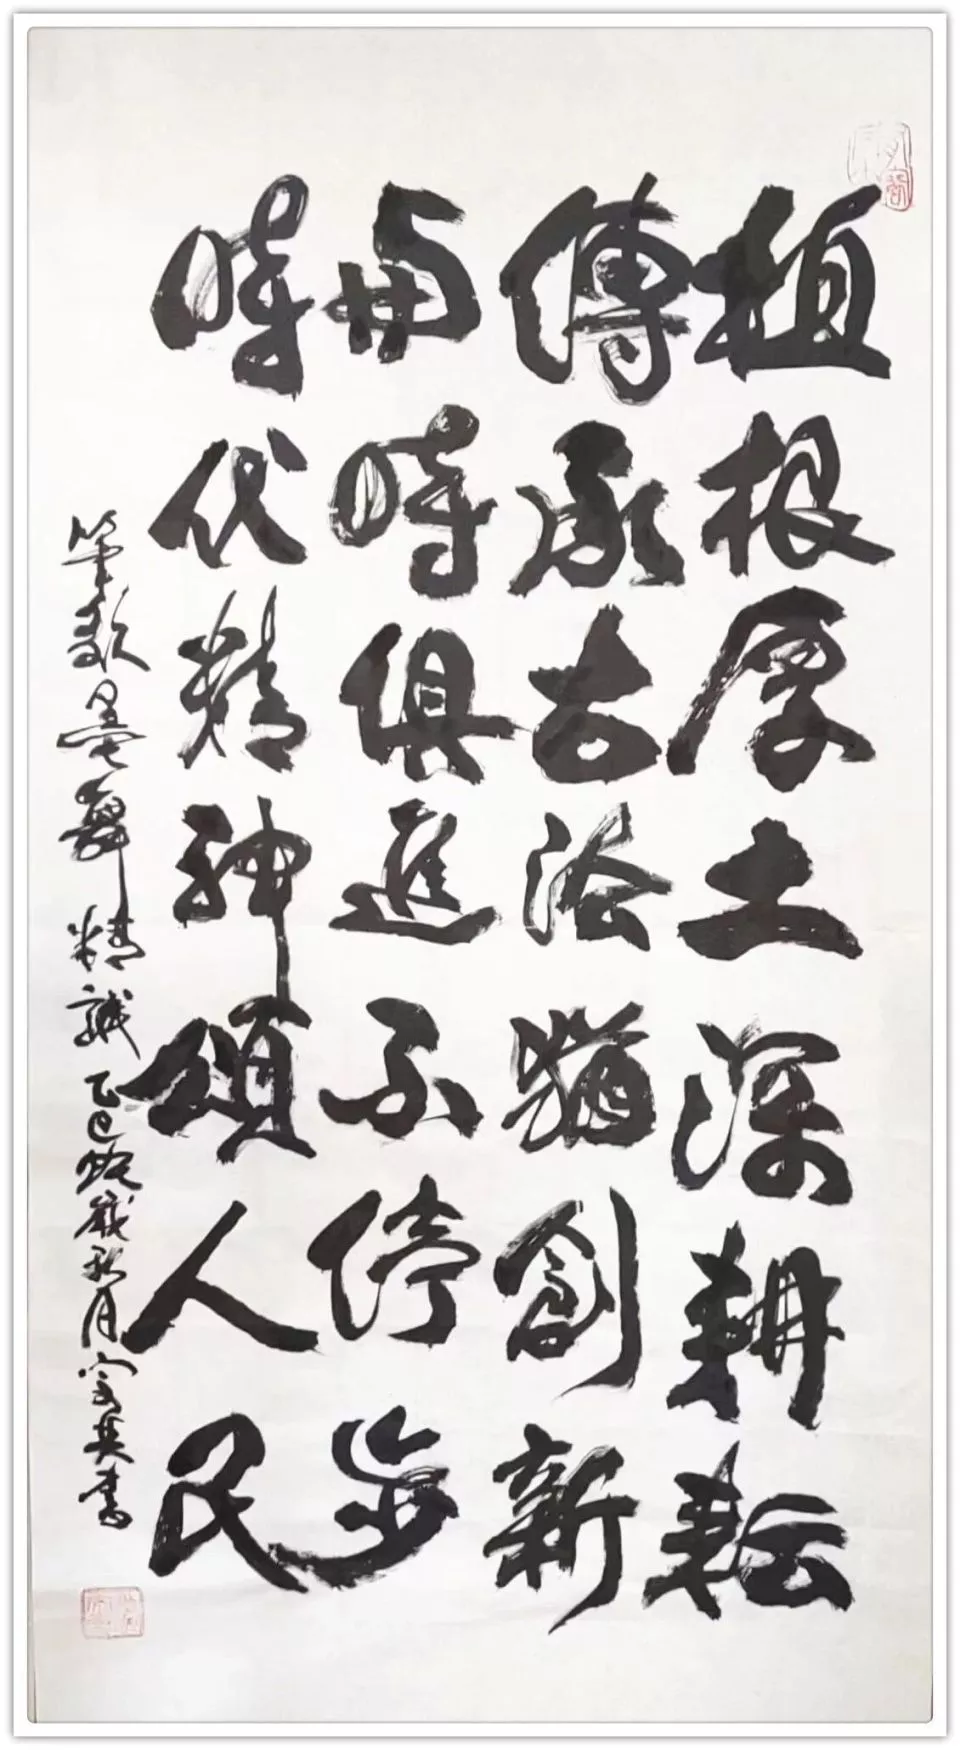 植根厚土深耕耘
傳承古法猶創新
与時俱進不停步
時代精神頌人民
筆歌墨舞精誠 乙巳蛇歲秋月 英書